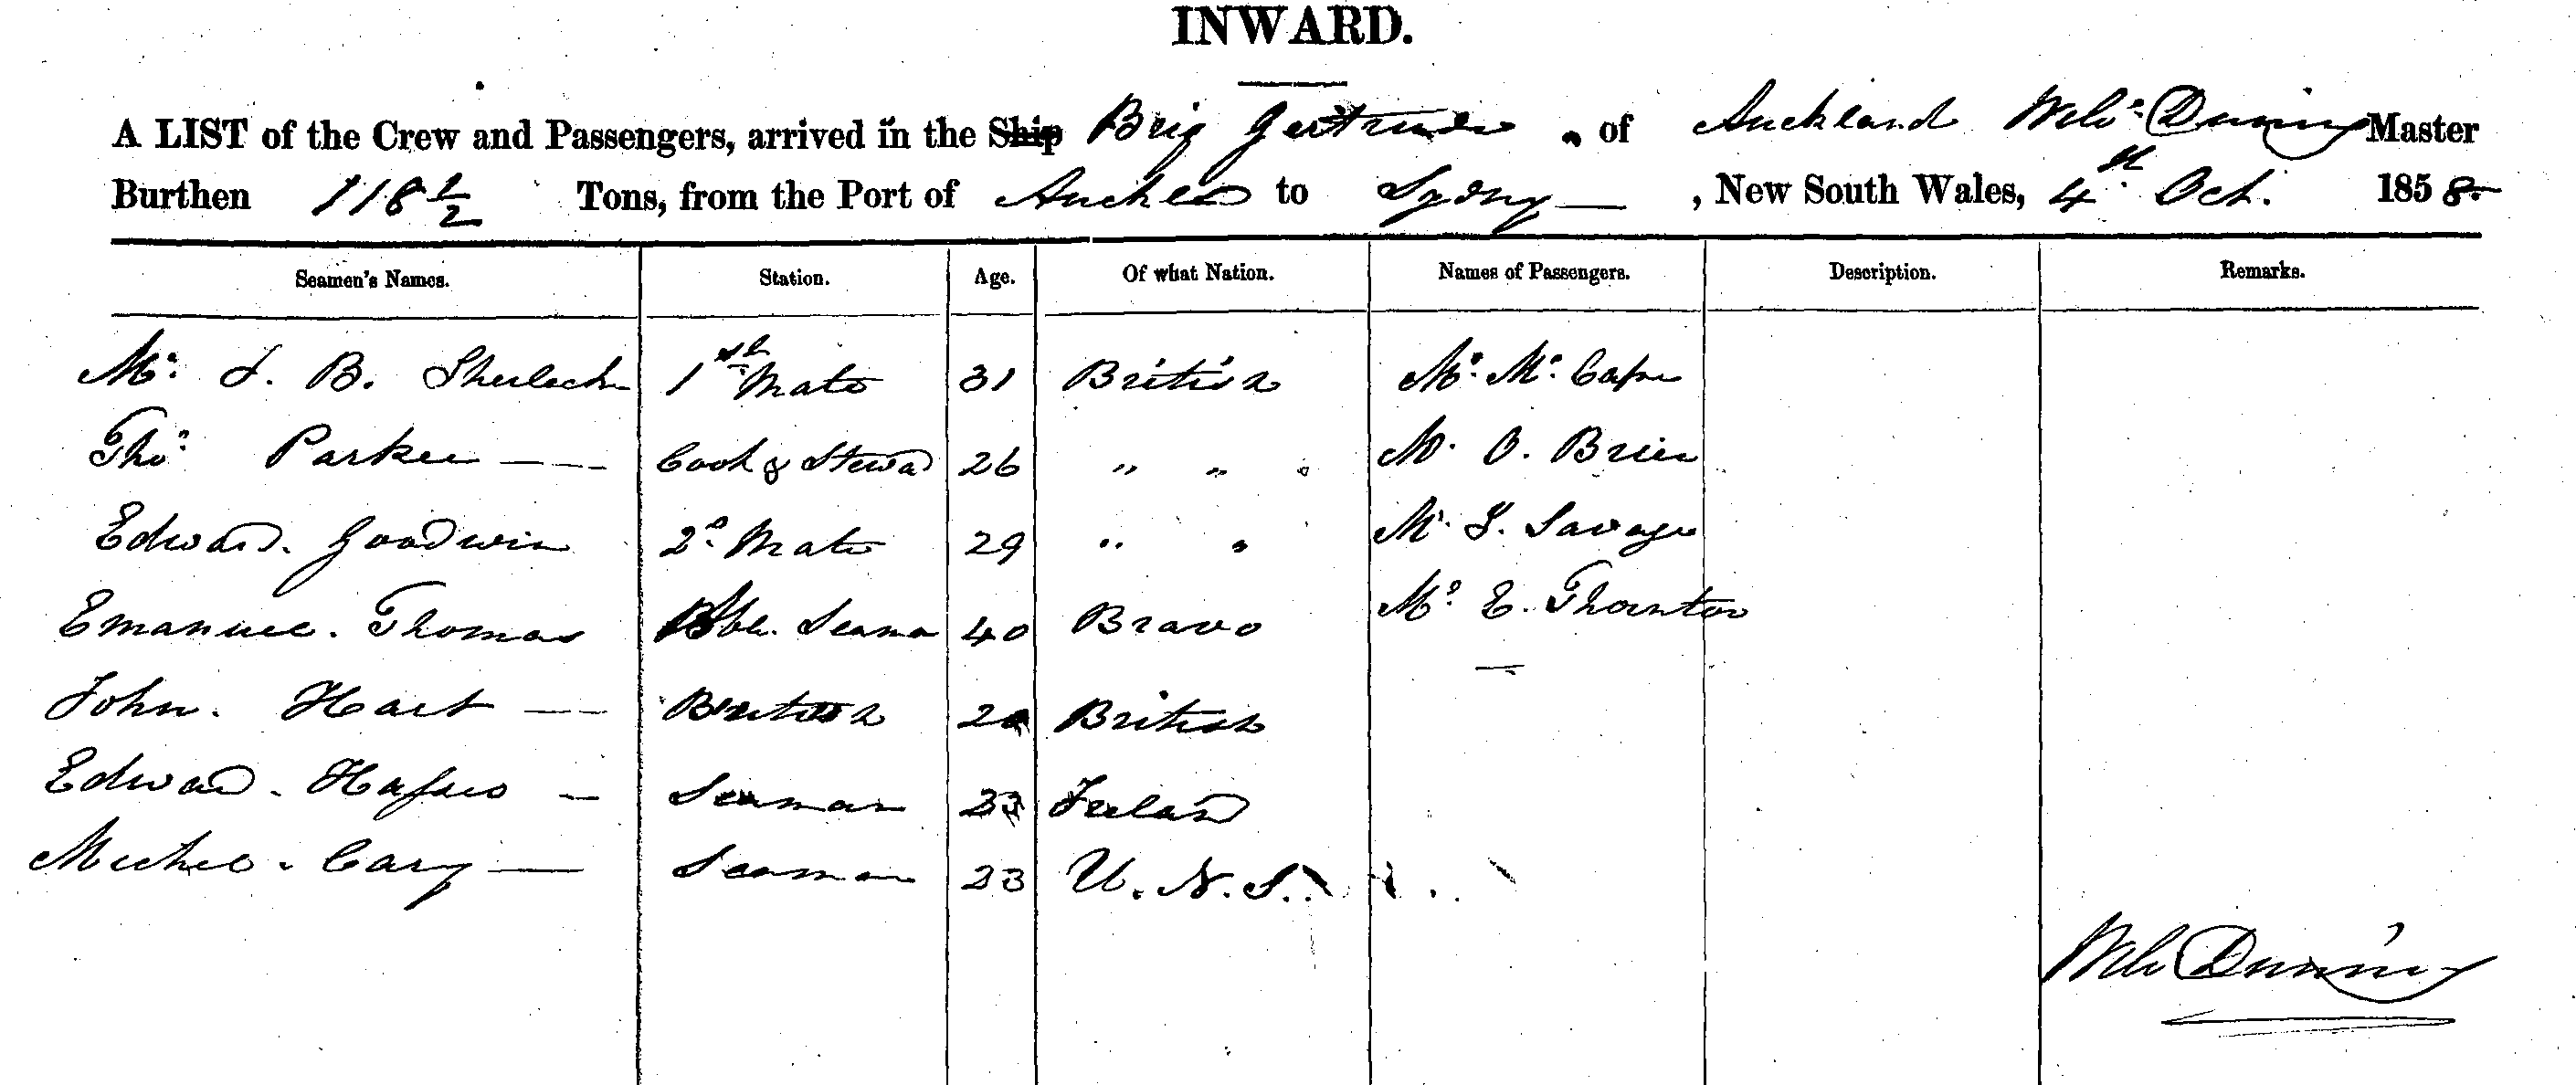 INWARD.
A LIST of the Crew and Passengers, arrived in the Ship Brig Gertrude of Auckland Master
Burthen 118 1/2 Tons, from the Port of to Sydney — , New South Wales, 4th Oct. 1858.
Seamen's Names. Station. Age. Of what Nation. Names of Passengers. Description. Remarks.
Mr. J. B. 1st Mate 31 British Mr. Mc.
Thos. Parker Cook & 26 " " " Mr. O. Brien
Edward. Goodwin 2d. Mate 29 " " Mr. Savage
Thomas 40 Bravo Mr. E. Thornton
John. Hart British British
Edward. Seaman Ireland
Cary Seaman 23 U. N. S.